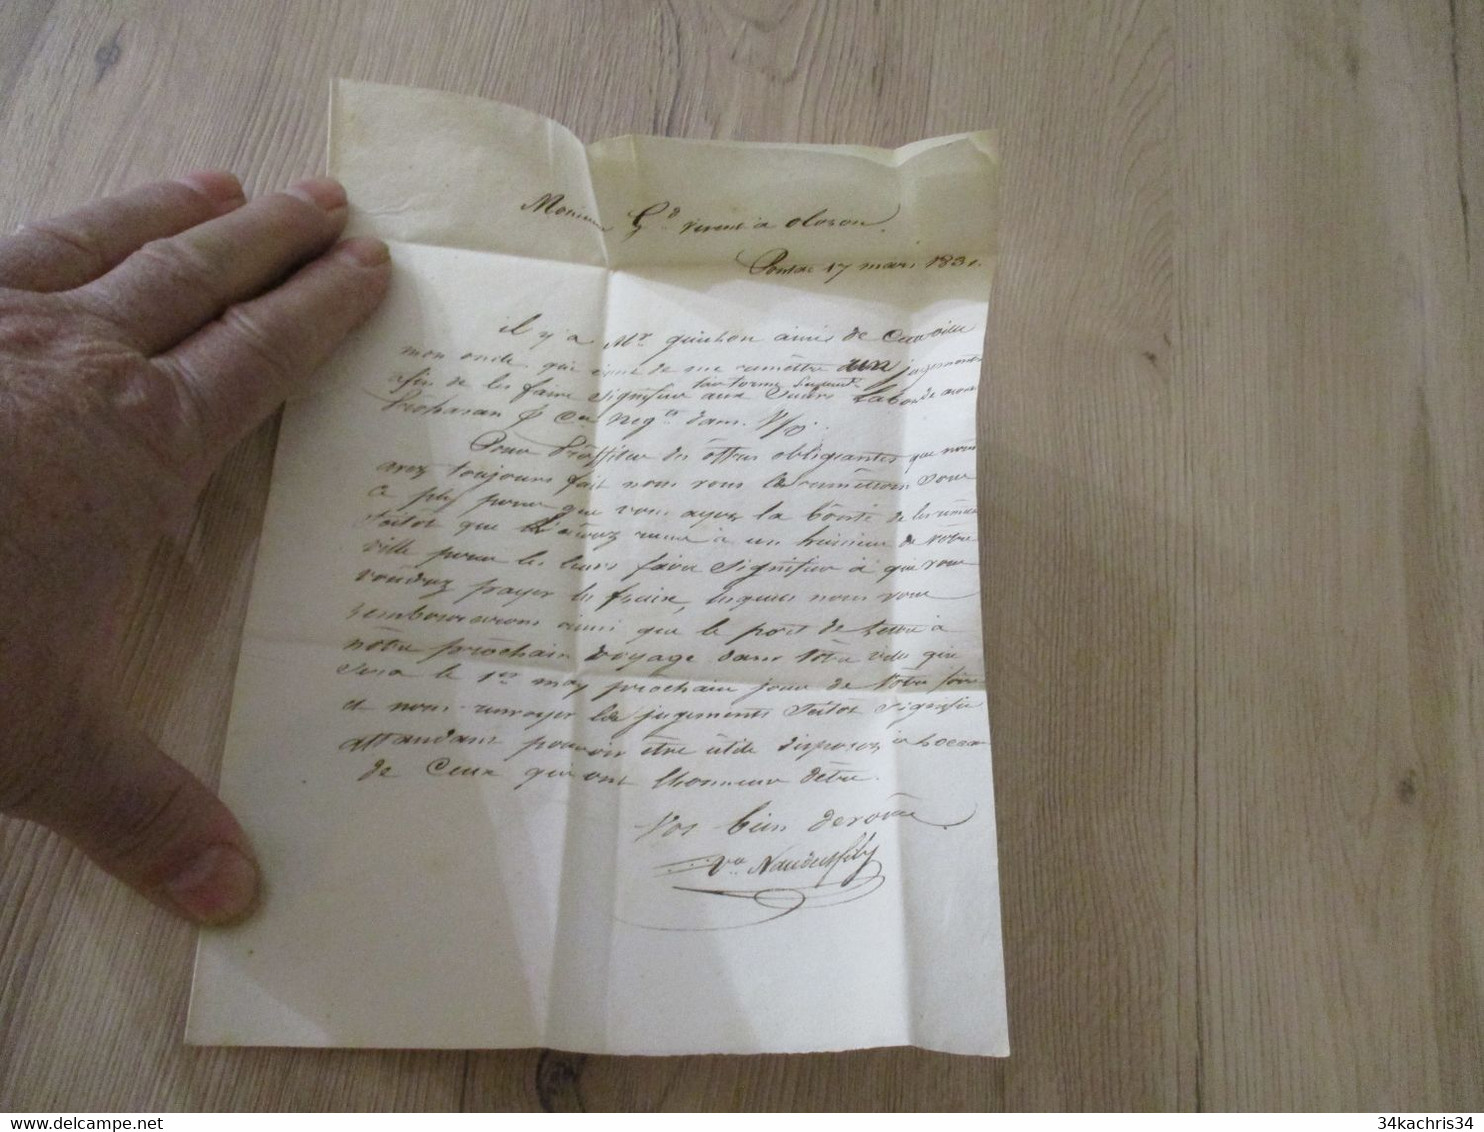 Monsieur Gd vivent à oloron.
Pontac 17 mars 1831.
il y a Mr guichon de
mon oncle qui de me remettre un jugement
afin de les faire signifier aux Sieurs
& Cie Negts dans
Pour Proffiter des offres obligeantes que nous
avez toujours fait nous vous les remettons sous
ce ply pour que vous ayez la bonté de les
Sitôt que recus à un huissier de votre
ville pour les leurs faire Signifier à qui vous
voudrez payer les fraix, lesquels nous vous
rembourcerons ainsi que le port de lettre à
nôtre prochain voyage dans vôtre ville qui
Sera le 1er may prochain jour de Votre foire
et nous renvoyer les jugements Sitôt Signifié
attandant pouvoir être utile disposez
de Ceux qui ont lhonneur dêtre.
Vos bien devoués
Ve
34kachris34